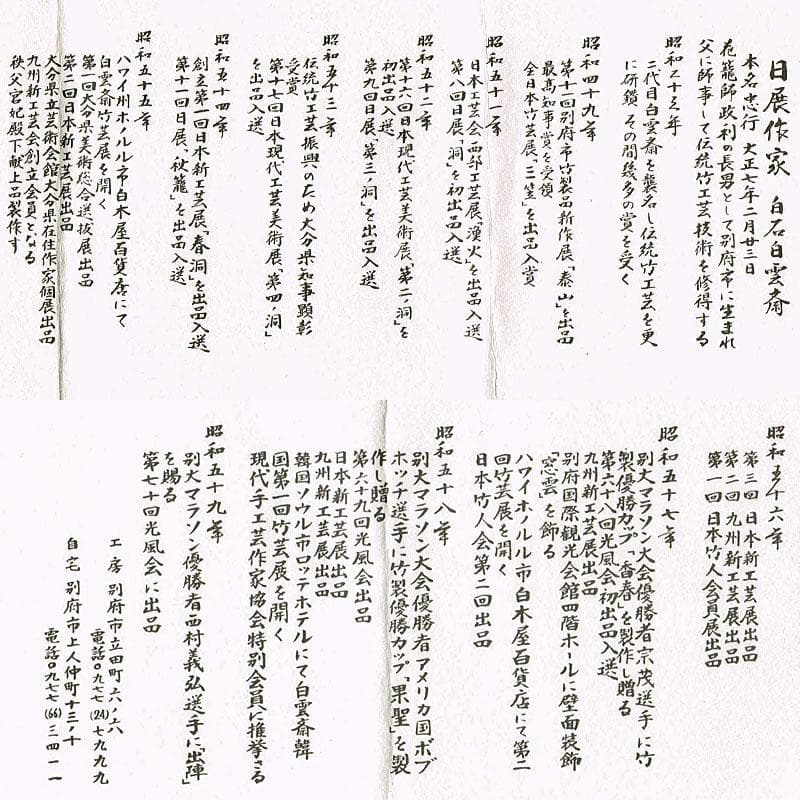 日展作家 白石白雲斎
本名忠行 大正七年二月廿三日
花籠師政利の長男として別府市に生まれ
父に師事して伝統竹工芸技術を修得する
昭和三十三年
二代目白雲斎を襲名し伝統竹工芸を更
に研鑽 その間幾多の賞を受く
昭和四十九年
第十一回別府市竹製品新作展「泰山」を出品
最高知事賞を受領
全日本竹芸展「三笠」を出品入賞
昭和五十一年
日本工芸会西部工芸展「漁火」を出品入選
第八回日展「洞」を初出品入選
昭和五十二年
第十六回日本現代工芸美術展「第二ノ洞」を
初出品入選
第九回日展「第三ノ洞」を出品入選
昭和五十三年
伝統竹工芸振興のため大分県知事顕彰
受賞
第十七回日本現代工芸美術展「第四ノ洞」
を出品入選
昭和五十四年
創立第一回日本新工芸展「春洞」を出品入選
第十一回日展「秋籠」を出品入選
昭和五十五年
ハワイ州ホノルル市白木屋百貨店にて
白雲斎竹芸展を開く
第一回大分県美術総合選抜展出品
第二回日本新工芸展出品
大分県立芸術会館大分県在住作家個展出品
九州新工芸会創立会員となる
秩父宮妃殿下献上品製作す
昭和五十六年
第三回日本新工芸展出品
第二回九州新工芸展出品
第一回日本竹人会会員展出品
昭和五十七年
別大マラソン大会優勝者宗茂選手に竹
製優勝カップ「香春」を製作し贈る
第六十八回光風会初出品入選
九州新工芸展出品
別府国際観光会館四階ホールに壁面装飾
「窓雲」を飾る
ハワイホノルル市白木屋百貨店にて第二
回竹芸展を開く
日本竹人会第二回出品
昭和五十八年
別大マラソン大会優勝者アメリカ国ボブ
ホッヂ選手に竹製優勝カップ「果聖」を製
作し贈る
第六十九回光風会出品
日本新工芸展出品
九州新工芸展出品
韓国ソウル市ロッテホテルにて白雲斎韓
国第一回竹芸展を開く
現代手工芸作家協会特別会員に推挙さる
昭和五十九年
別大マラソン優勝者西村義弘選手に「出陣」
を賜る
第七十回光風会に出品
工房 別府市立田町六ノ六八
電話〇九七七(24)七九九九
自宅 別府市上人仲町十三ノ十
電話〇九七七(66)三四一一